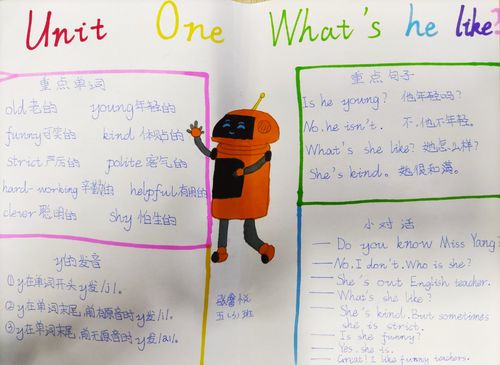 Unit One What's he like?
重点单词
old老的 young年轻的
funny可笑的 kind 体贴的
strict严厉的 polite客气的
hard-working辛勤的 helpful有用的
clever聪明的 shy 怕生的
y的发音
①y在单词开头y发/j/。
②y在单词末尾,前有原音时y发/i/。
③y在单词末尾,前无原音时y发/ai/。
五(6)班
重点句子
Is he young? 他年轻吗?
No.he isn't. 不.他不年轻。
What's she like? 她怎么样?
She's kind. 她很和蔼。
小对话
— Do you know Miss Yang?
— No.I don't.Who is she?
— She's out English teacher.
— What's she like?
— She's kind.But sometimes
she is strict.
— Is she funny?
— Yes.she is.
— Great! I like funny teachers.